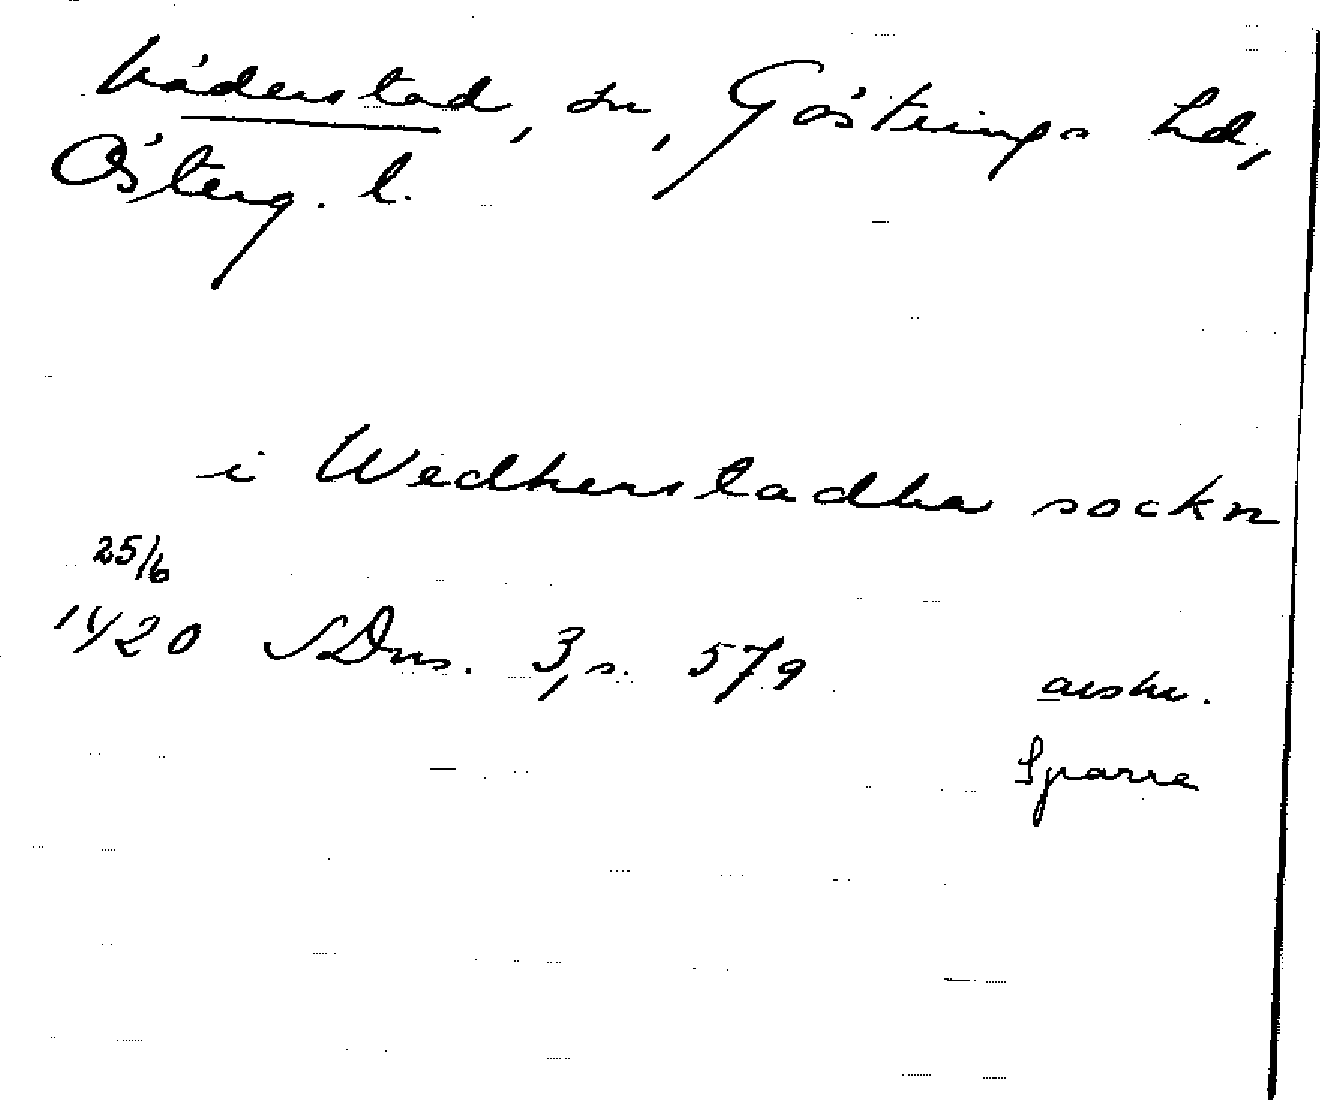 Väderstad, sn, Göstrings hd,
Österg. l.
i Wedherstadha sockn
25/6
1420 SDns. 3, s. 579
avskr.
Sparre